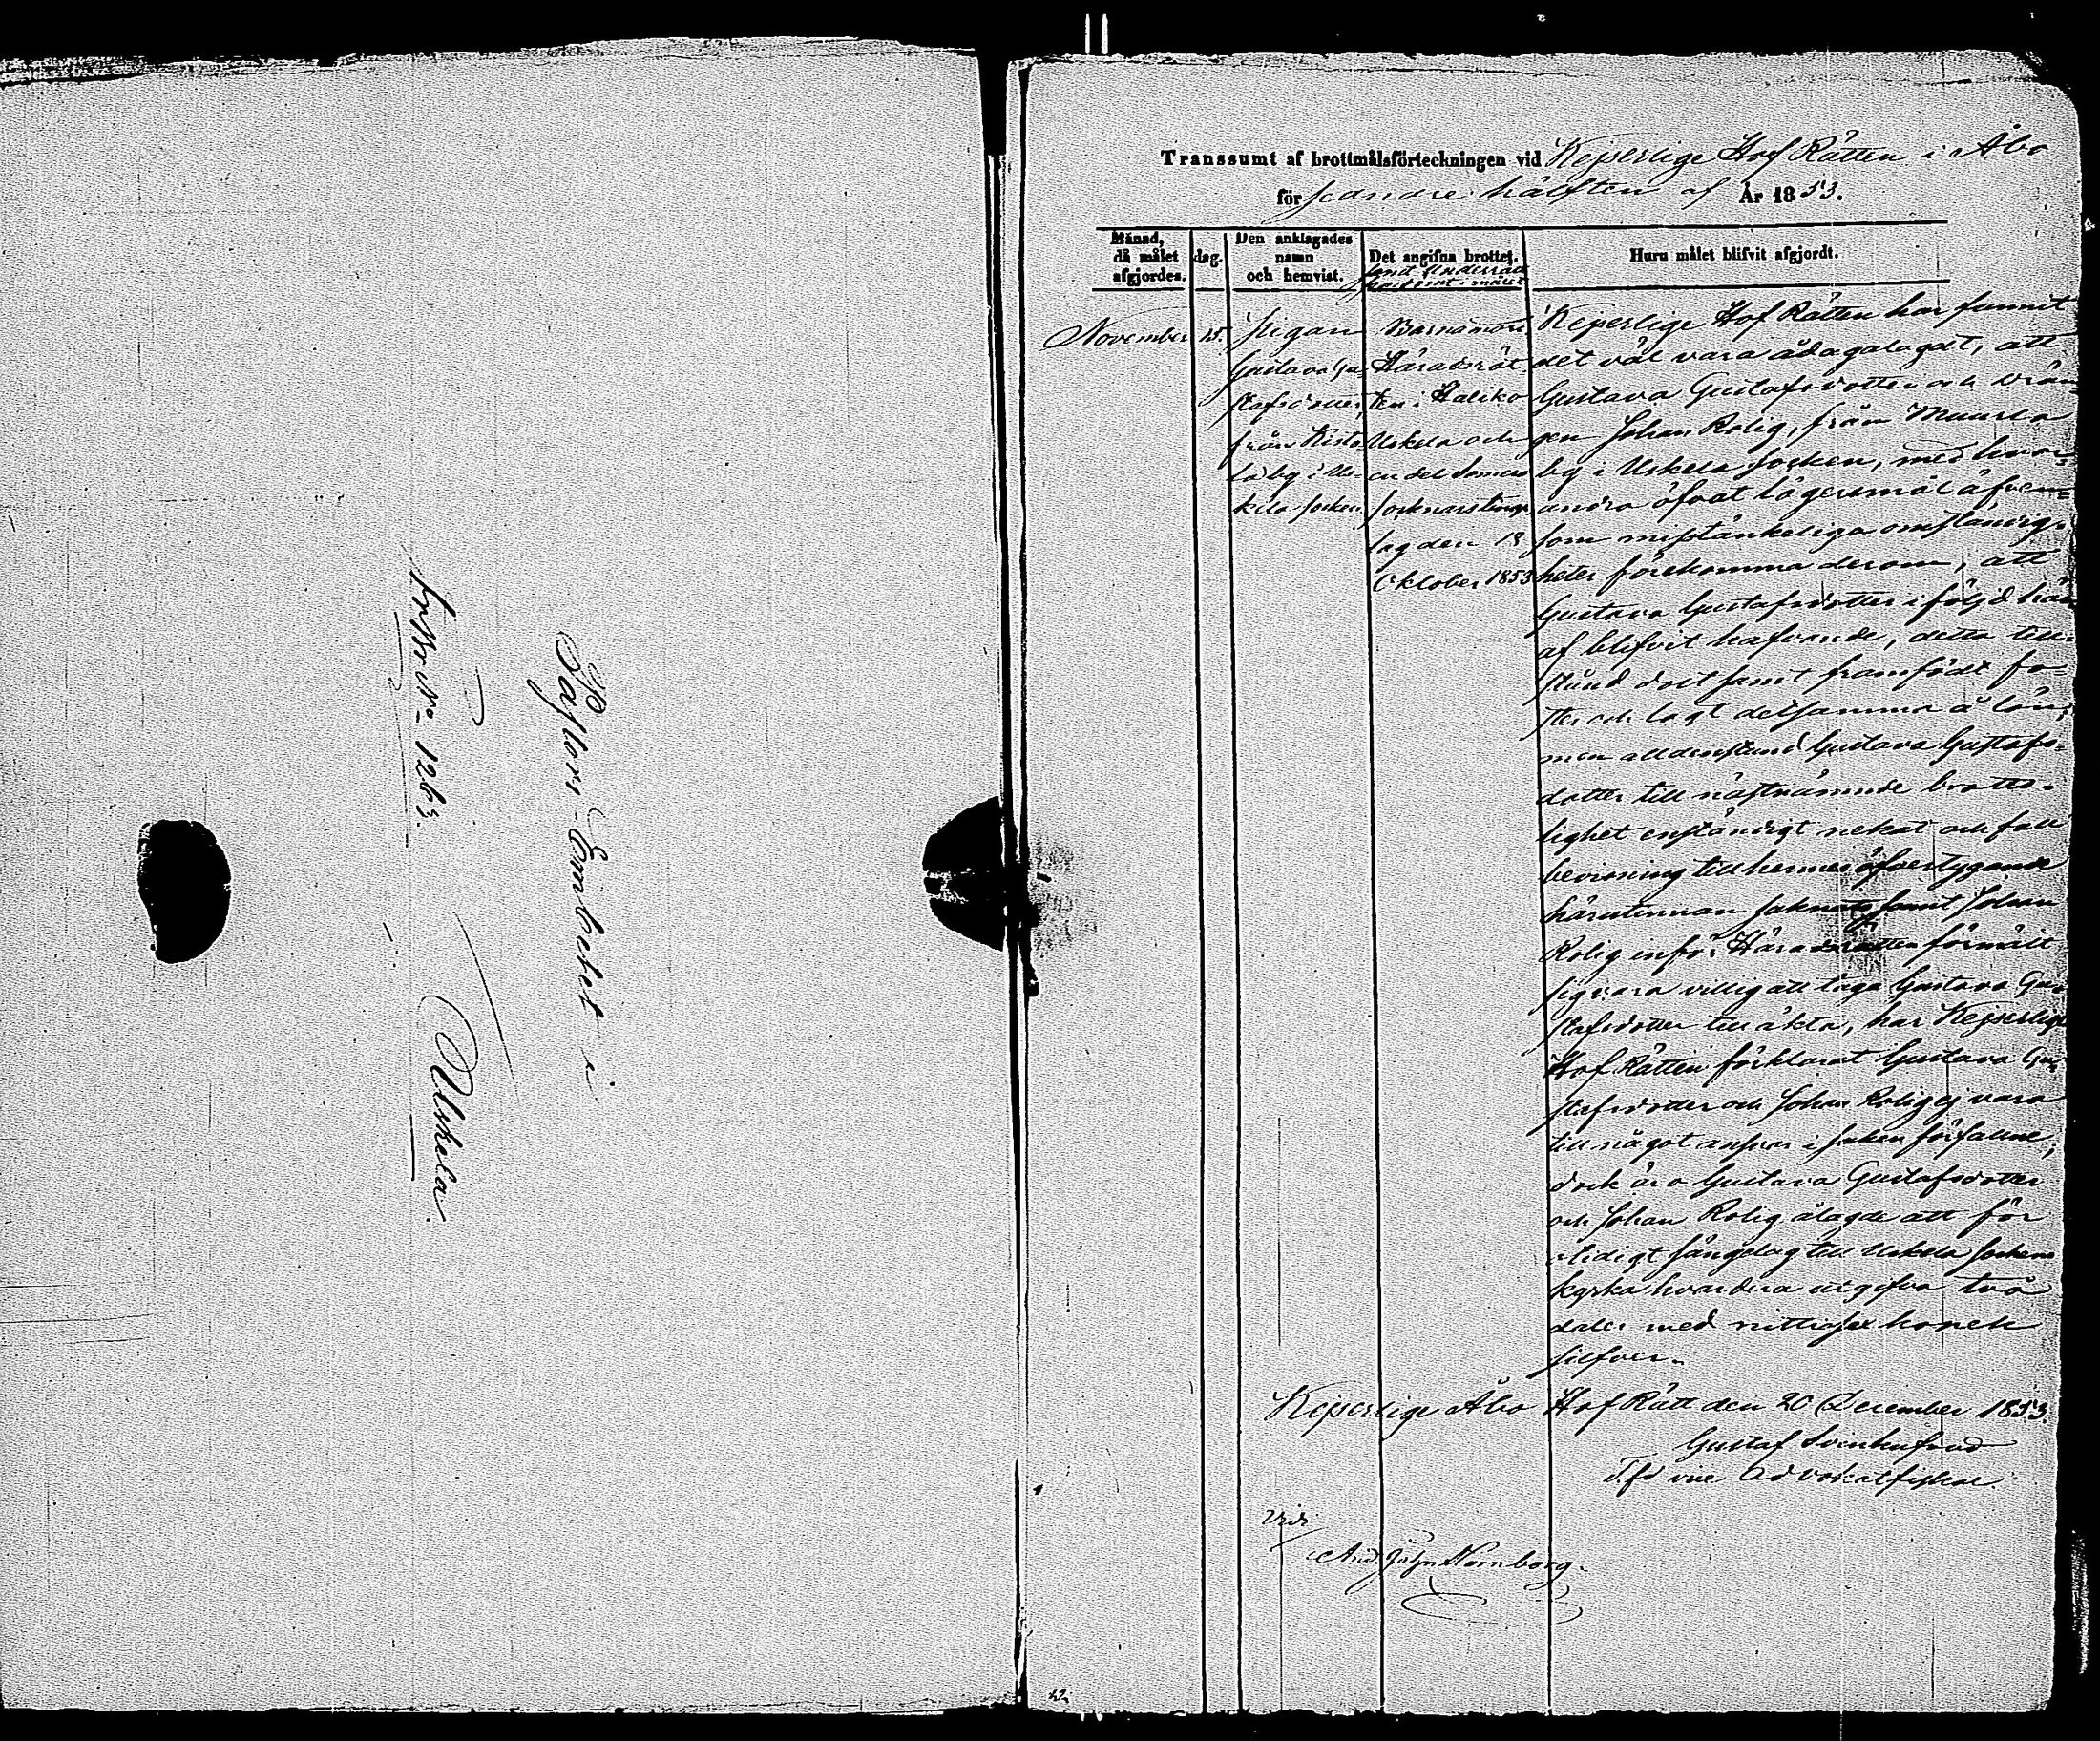 Pastors-Embetet i
Uskela
No 1263.
Transsumt af brottmålsförteckningen vid Kejserlige Hof Rätten i Åbo
för sednare hälften af År 1853.
Månad, då målet afgjordes.
dag.
Den anklagades namn och hemvist.
Det angifna brottet.
samt Underrätt
som i målet
Huru målet blifvit afgjordt.
November
15.
Pigan
Gustava Gu-
stafsdotter,
från Kista-
la by i Us-
kela socken
Barnamord
Häradsrät-
ten i Haliko
Uskela och
en del Somero
socknars tings
lag den 18
Oktober 1853
Kejserlige Hof Rätten har funnit
det väl vara ådagalagdt, att
Gustava Gustafsdotter och drän-
gen Johan Rolig, från Muurla
by i Uskela socken, med hvar-
andra öfvat lägersmål äfven-
som misstänkeliga omständig-
heter förekomma derom, att
Gustava Gustafsdotter i följd här-
af blifvit hafvande, detta till-
stånd döljt samt framfödt fo-
ster och lagt detsamma å lön;
men alldenstund Gustava Gustafs-
dotter till nästnämnde brotts-
lighet enständigt nekat och full
bevisning till hennes öfvertygande
härutinnan saknas samt Johan
Rolig inför Häradsrätten förmält
sig vara villig att taga Gustava Gu-
stafsdotter till äkta, har Kejserlige
Hof Rätten förklarat Gustava Gu-
stafsdotter och Johan Rolig ej vara
till något ansvar i saken förfallne;
dock äro Gustava Gustafsdotter
och Johan Rolig ålagde att för
otidigt sängelag till Uskela sockens
kyrka hvardera utgifva två
daler med nittiosex kopek
silfver.
Kejserlige Åbo Hof Rätt den 20 December 1853.
Gustaf Svinhufvud
T.f. vice Advokatfiskal.
Vidi
And. Joh. Normborg.